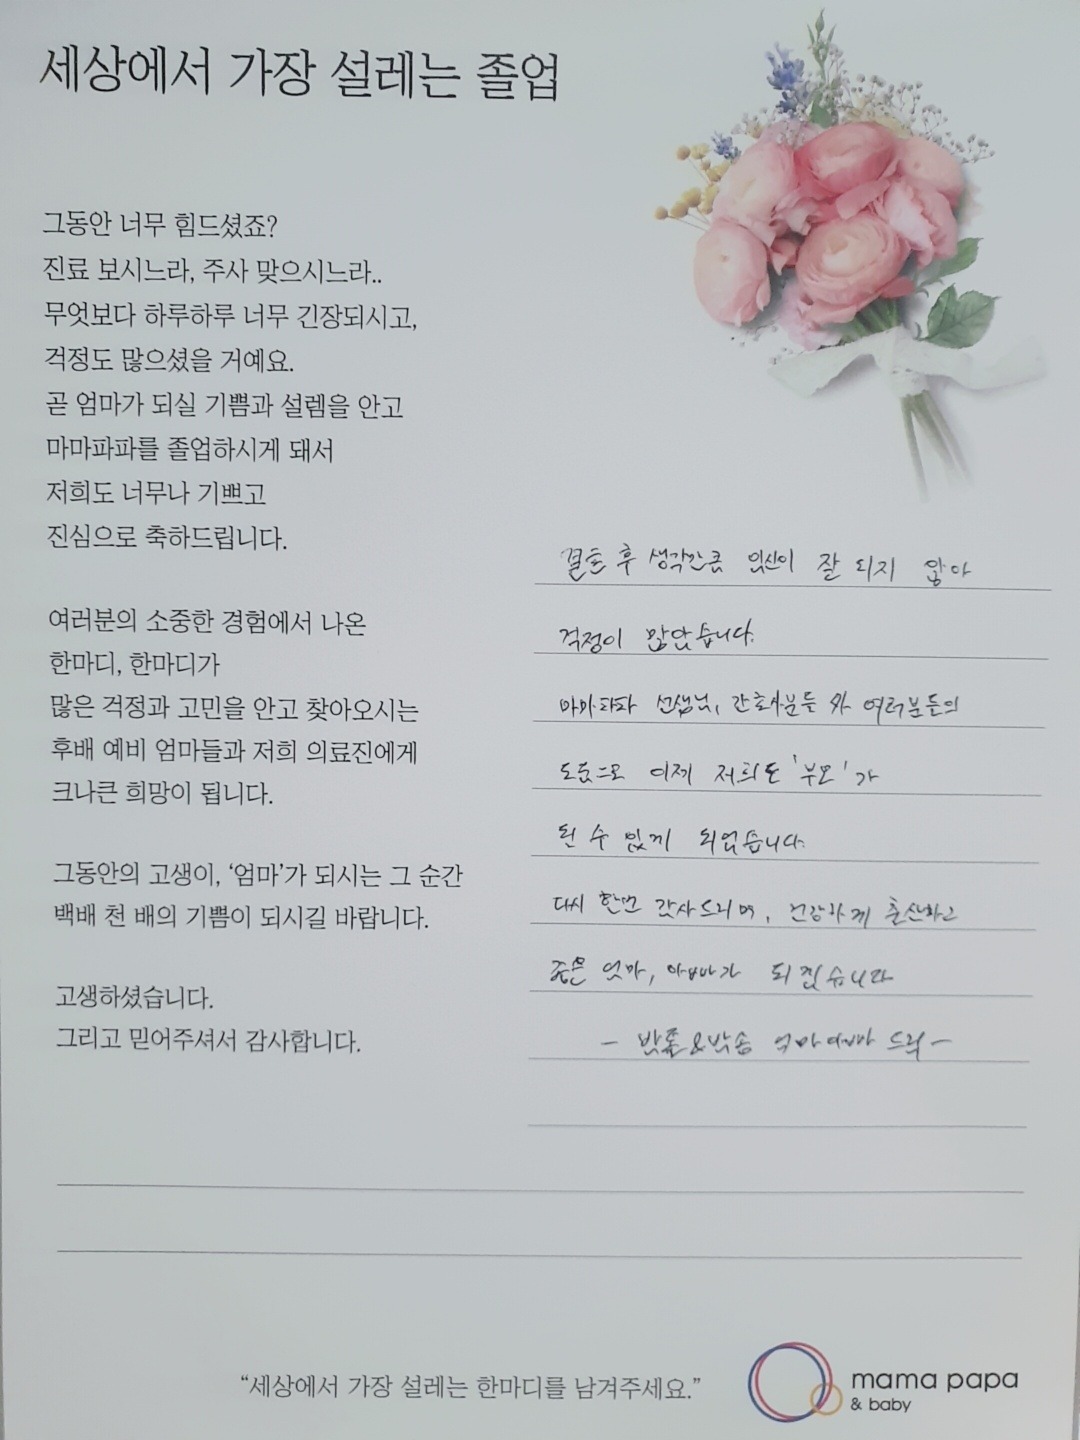 세상에서 가장 설레는 졸업
그동안 너무 힘드셨죠?
진료 보시느라, 주사 맞으시느라..
무엇보다 하루하루 너무 긴장되시고,
걱정도 많으셨을 거예요.
곧 엄마가 되실 기쁨과 설렘을 안고
마마파파를 졸업하시게 돼서
저희도 너무나 기쁘고
진심으로 축하드립니다.
여러분의 소중한 경험에서 나온
한마디, 한마디가
많은 걱정과 고민을 안고 찾아오시는
후배 예비 엄마들과 저희 의료진에게
크나큰 희망이 됩니다.
그동안의 고생이, ‘엄마’가 되시는 그 순간
백배 천 배의 기쁨이 되시길 바랍니다.
고생하셨습니다.
그리고 믿어주셔서 감사합니다.
결혼 후 생각만큼 임신이 잘 되지 않아
걱정이 많았습니다.
마마파파 선생님, 간호사분들 와 여러분들의
도움으로 이제 저희도 '부모'가
될 수 있게 되었습니다.
다시 한번 감사드리며, 건강하게 출산하고
좋은 엄마, 아빠가 되겠습니다
- 엄마아빠 드림 -
“세상에서 가장 설레는 한마디를 남겨주세요.”
mama papa
& baby